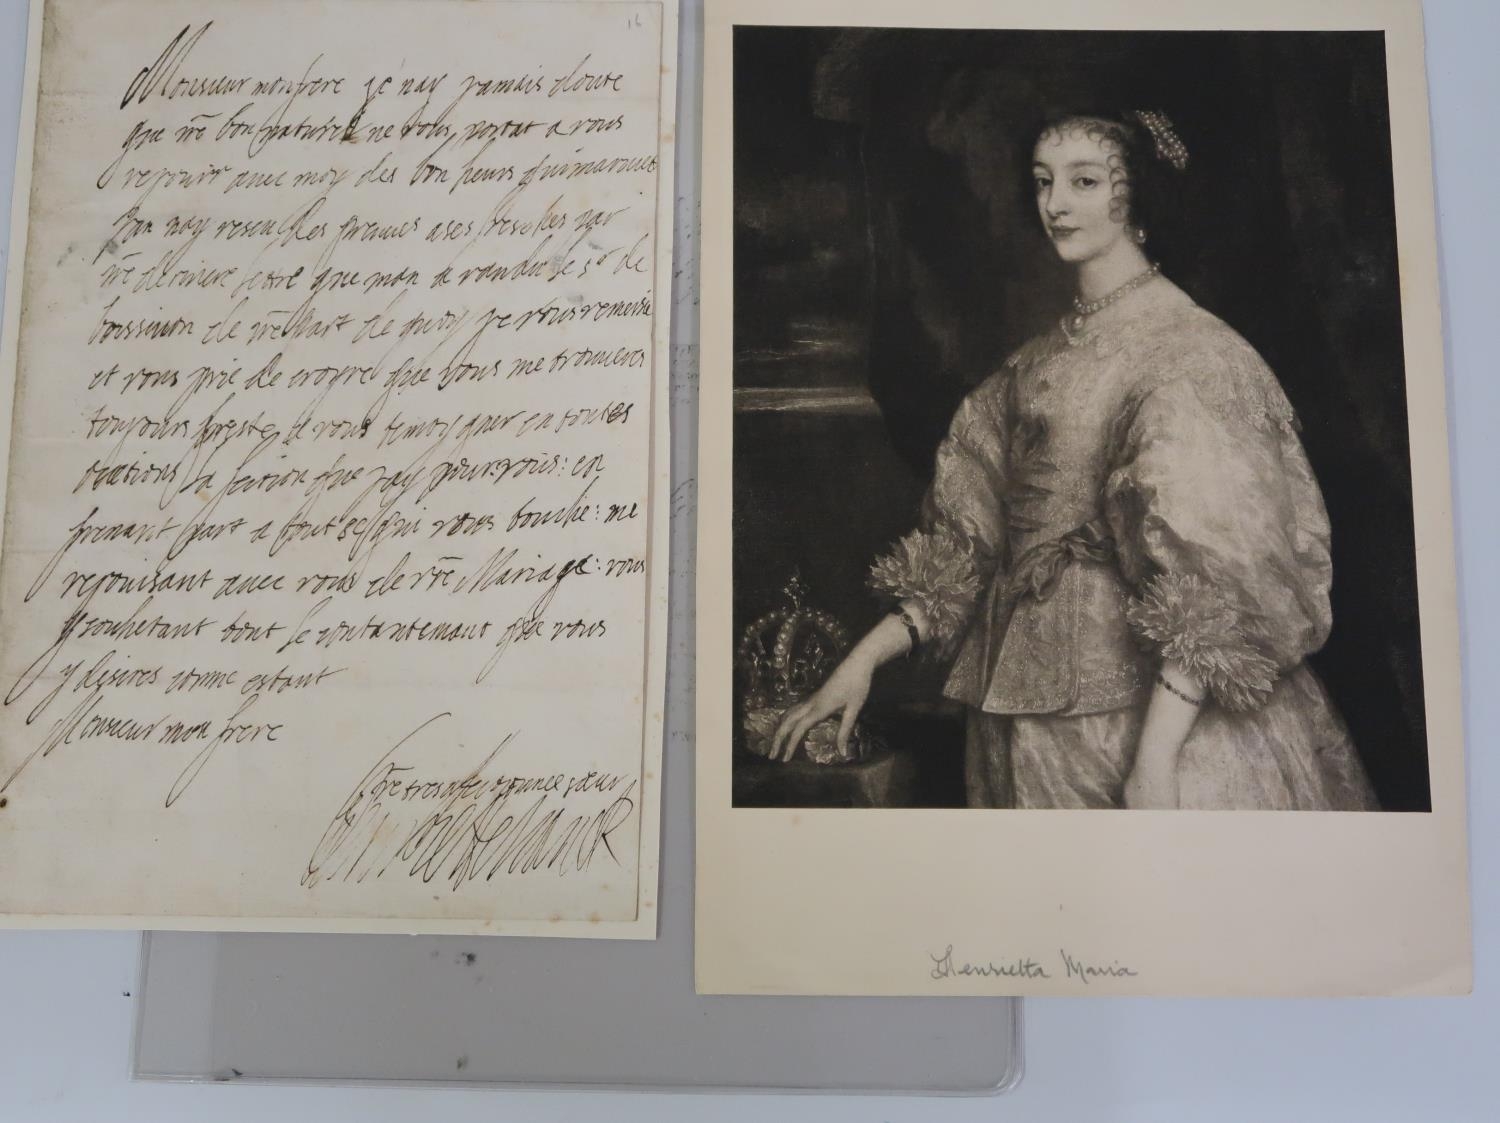 16
Monsieur mon frere je nay jamais doute
que vre bon naturel ne vous portat a vous
rejouir avec moy des bon heurs qui marivet
jan nay reseu des preuves
vre derniere lettre que man a randu le sr de
de vre part de quoy je vous remersie
et vous prie de croyre que vous me trouveres
toujours preste a vous temoygner en toutes
ocations la fection que jay pour vous: en
prenant part a tout se qui vous touche: me
rejouisant avec vous de vre Mariage: vous
y souhetant tout le contantemant que vous
y desires comme estant
Monsieur mon frere
vre tres affectionnee soeur
Henriette Marie R
Henrietta Maria